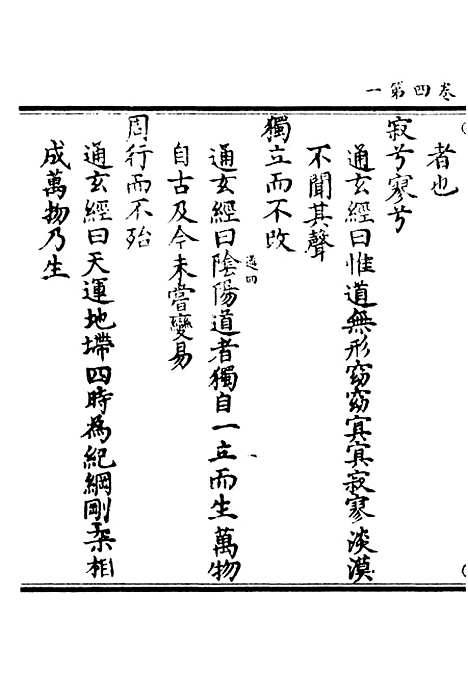 卷四第一
者也
寂兮寥兮
通玄經曰惟道無形窈窈冥冥寂寥淡漠
不聞其聲
獨立而不改
通四
通玄經曰陰陽道者獨自一立而生萬物
自古及今未嘗變易
周行而不殆
通玄經曰天運地墆四時為紀綱剛柔相
成萬物乃生